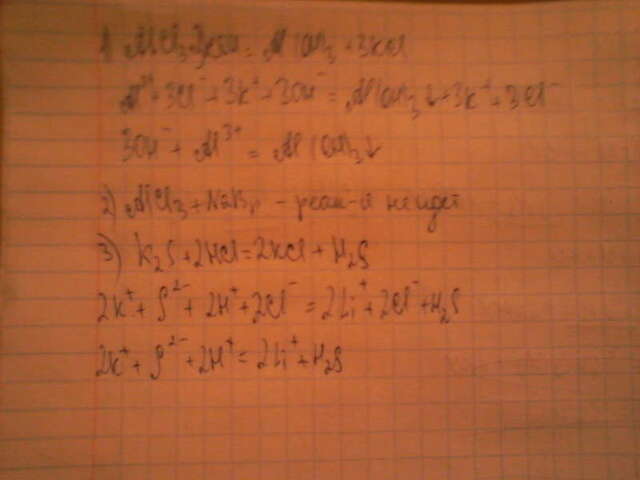 1) AlCl3+3KOH = Al(OH)3 + 3KCl
Al3+ + 3Cl- + 3K+ + 3OH- = Al(OH)3↓ + 3K+ + 3Cl-
3OH- + Al3+ = Al(OH)3↓
2) AlCl3 + NaBr - реак-я не идет
3) K2S + 2HCl = 2KCl + H2S
2K+ + S2- + 2H+ + 2Cl- = 2Li+ + 2Cl- + H2S
2K+ + S2- + 2H+ = 2Li+ + H2S